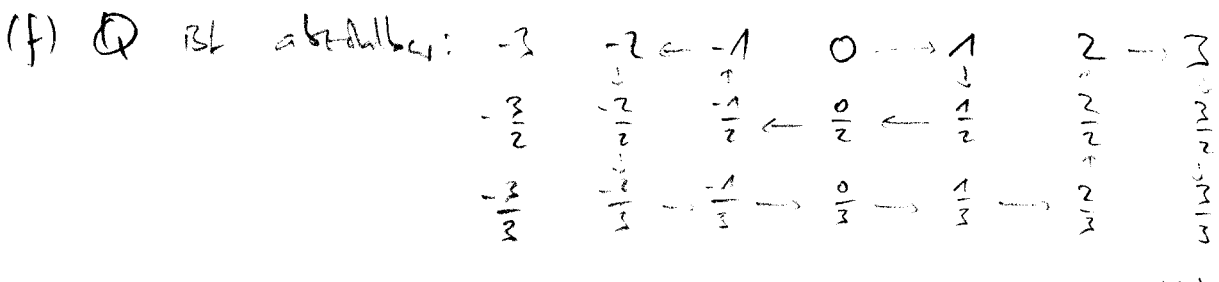 (f) ℚ ist abzählbar: -3 -2 ← -1 0 → 1 2 → 3
↓ ↑ ↓ ↑ ↓
-3/2 -2/2 -1/2 ← 0/2 ← 1/2 2/2 3/2
↓ ↑ ↓
-3/3 -2/3 → -1/3 → 0/3 → 1/3 → 2/3 3/3